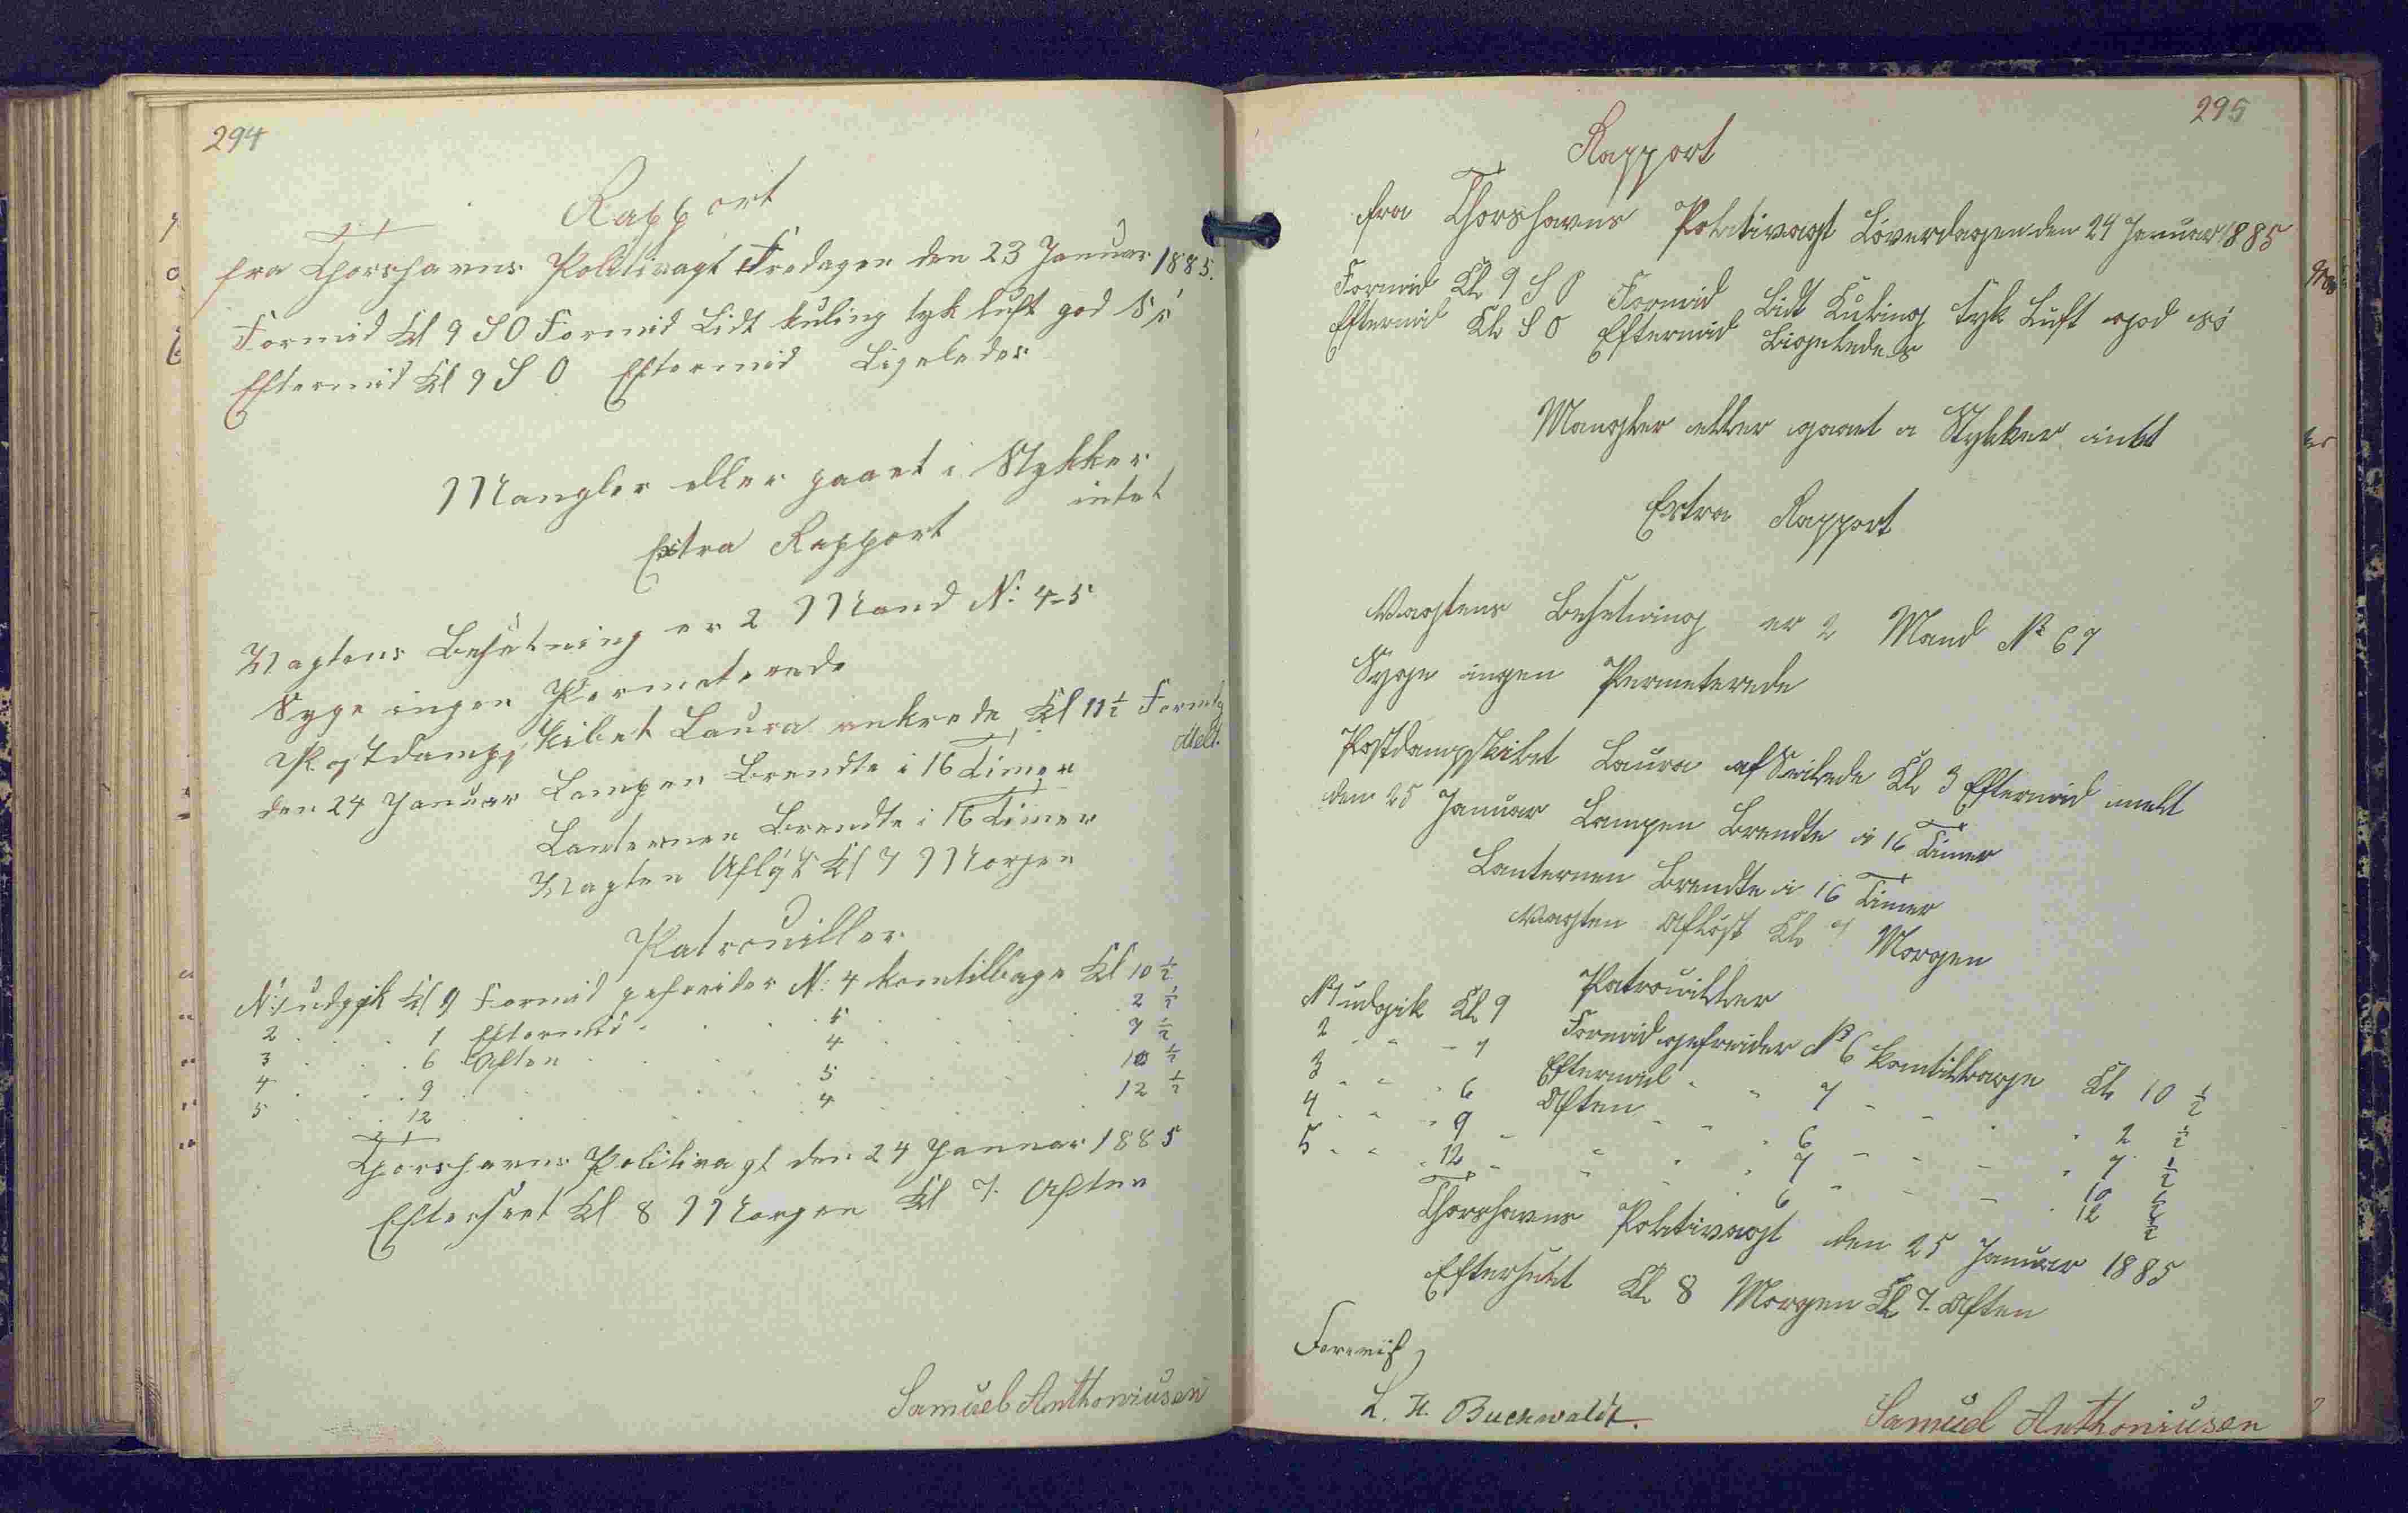 294
Rapport
fra Thorshavns Politivagt Fredagen den 23 Januar 1885.
Formid Kl 9 S O Formid Lidt kuling tyk luft god Sö
Eftermid Kl 9 S O Eftermid Ligeledes
Mangler eller gaaet i Stykker
intet
Extra Rapport
Vagtens Besetning er 2 Mand N: 4-5
Syge ingen Permeterede
Postdampskibet Laura ankrede Kl 11½ Formid
Meldt.
den 24 Januar Lampen Brendte i 16 Timer
Lanternen Brendte i 16 Timer
Vagten Afløst Kl 7 Morgen
Patrouiller
N: 1 udgik Kl 9 Formid gefreider N: 4 komtilbage Kl 10 ½
2 . . . 1 Eftermid . . . 5 . . . 2 ½
3 . . . 6 Aften . . . 4 . . . 7 ½
4 . . . 9 . . . 5 . . . 10 ½
5 . . . 12 . . . 4 . . . 12 ½
Thorshavns Politivagt den 24 Januar 1885
Efterseet Kl 8 Morgen Kl 7. Aften
Samuel Anthoniusen
295
Rapport
fra Thorshavns Politivagt Löverdagen den 24 Januar 1885
Formid Kl 9 S O Formid Lidt Kuling Tyk Luft god sö
Eftermid Kl S O Eftermid Ligeledes
Mangler eller gaaet i Stykker intet
Extra Rapport
Vagtens Besetning er 2 Mand No 6 7
Syge ingen Permeterede
Postdampskibet Laura afseilede Kl 3 Eftermid melt
den 25 Januar Lampen Brendte i 16 Timer
Lanternen Brendte i 16 Timer
Vagten Afløst Kl 7 Morgen
Patrouiller
No 1 udgik Kl 9 Formid gefreider No 6 komtilbage Kl 10 ½
2 - - - 1 Eftermid - - 7 - - - 2 ½
3 - - - 6 Aften - - - 6 - - - 7 ½
4 - - - 9 - - - 7 - - - 10 ½
5 - - - 12 - - - 6 - - - 12 ½
Thorshavns Politivagt den 25 Januar 1885
Efterseet Kl 8 Morgen Kl 7. Aften
Forevist
L. H. Buchwaldt.
Samuel Anthoniusen